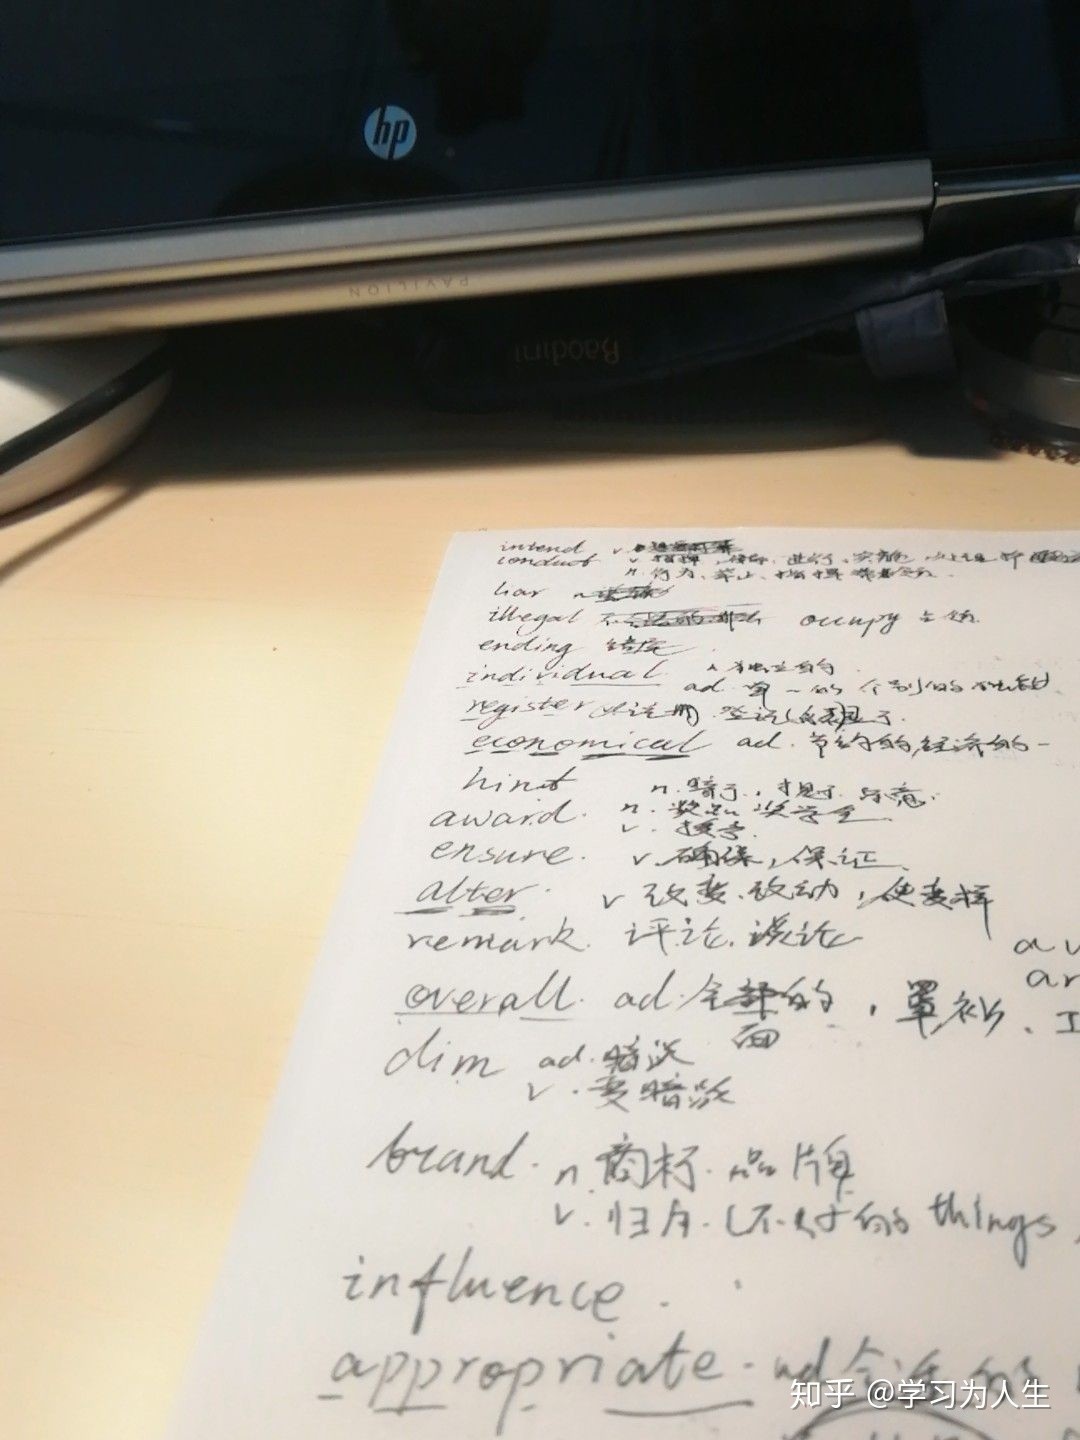 hp
PAVILION
Baodini
intend v
conduct v 指挥, 进行, 实施
n. 行为, 举止, 指挥
illegal occupy 占领
ending 结尾
individual 独立的
ad. 单一的 个别的
register v 注册 登记
economical ad. 节约的, 经济的
hint n. 暗示, 提示. 示意.
award. n. 奖品 奖学金.
v. 授予.
ensure. v. 确保, 保证
alter. v 改变. 改动, 使变样
remark. 评论. 谈论
overall. ad. 全 的, 罩衫、工
面
dim ad. 暗淡
v. 变暗淡
brand. n. 商标. 品牌
v. 归为. (不好的 things
influence.
appropriate. ad 合适的
知乎 @学习为人生